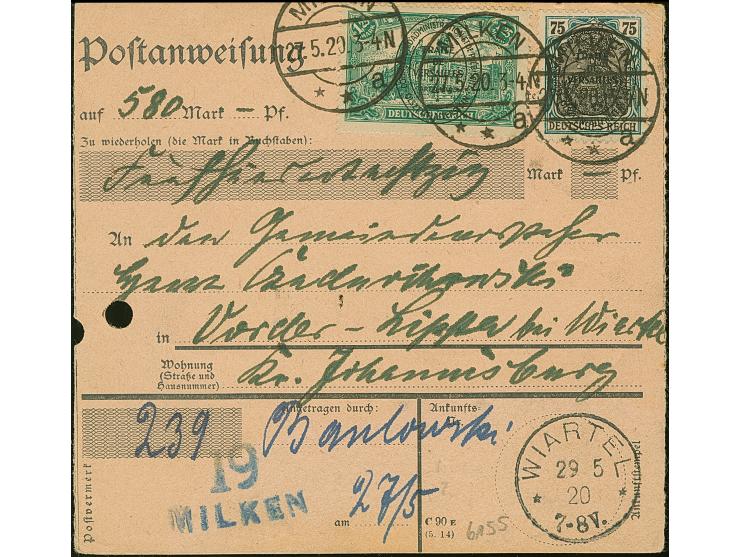 Postanweisung
MILKEN 27.5.20 3-4N a
MILKEN 27.5.20 3-4N a
75 75
DEUTSCHES REICH
DEUTSCHES REICH
auf 580 Mark — Pf.
Zu wiederholen (die Mark in Buchstaben):
Fünfhundertachtzig Mark — Pf.
An den Gemeindevorsteher
Herrn
in Vorder-Lippa bei Wiartel
Wohnung
(Straße und
Hausnummer)
Kr. Johannisburg
239
eingetragen durch:
Ankunfts-
Nr.
19
MILKEN
am 27/5
Postvermerk
C 90 E
(5. 14)
6A55
WIARTEL
29 5
20
7-8V.
Ankunftsstempel